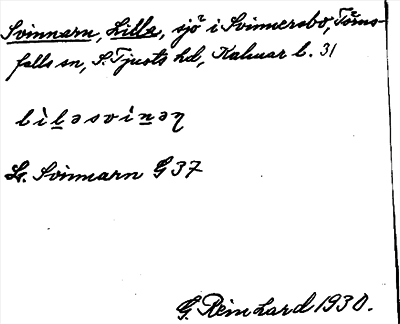 Svinnarn, Lilla, sjö i Svinnersbo, Törns-
falls sn, S. Tjusts hd, Kalmar l. 31
lìlasvinaɳ
L. Svinnarn G 37
G. Reinhard 1930.